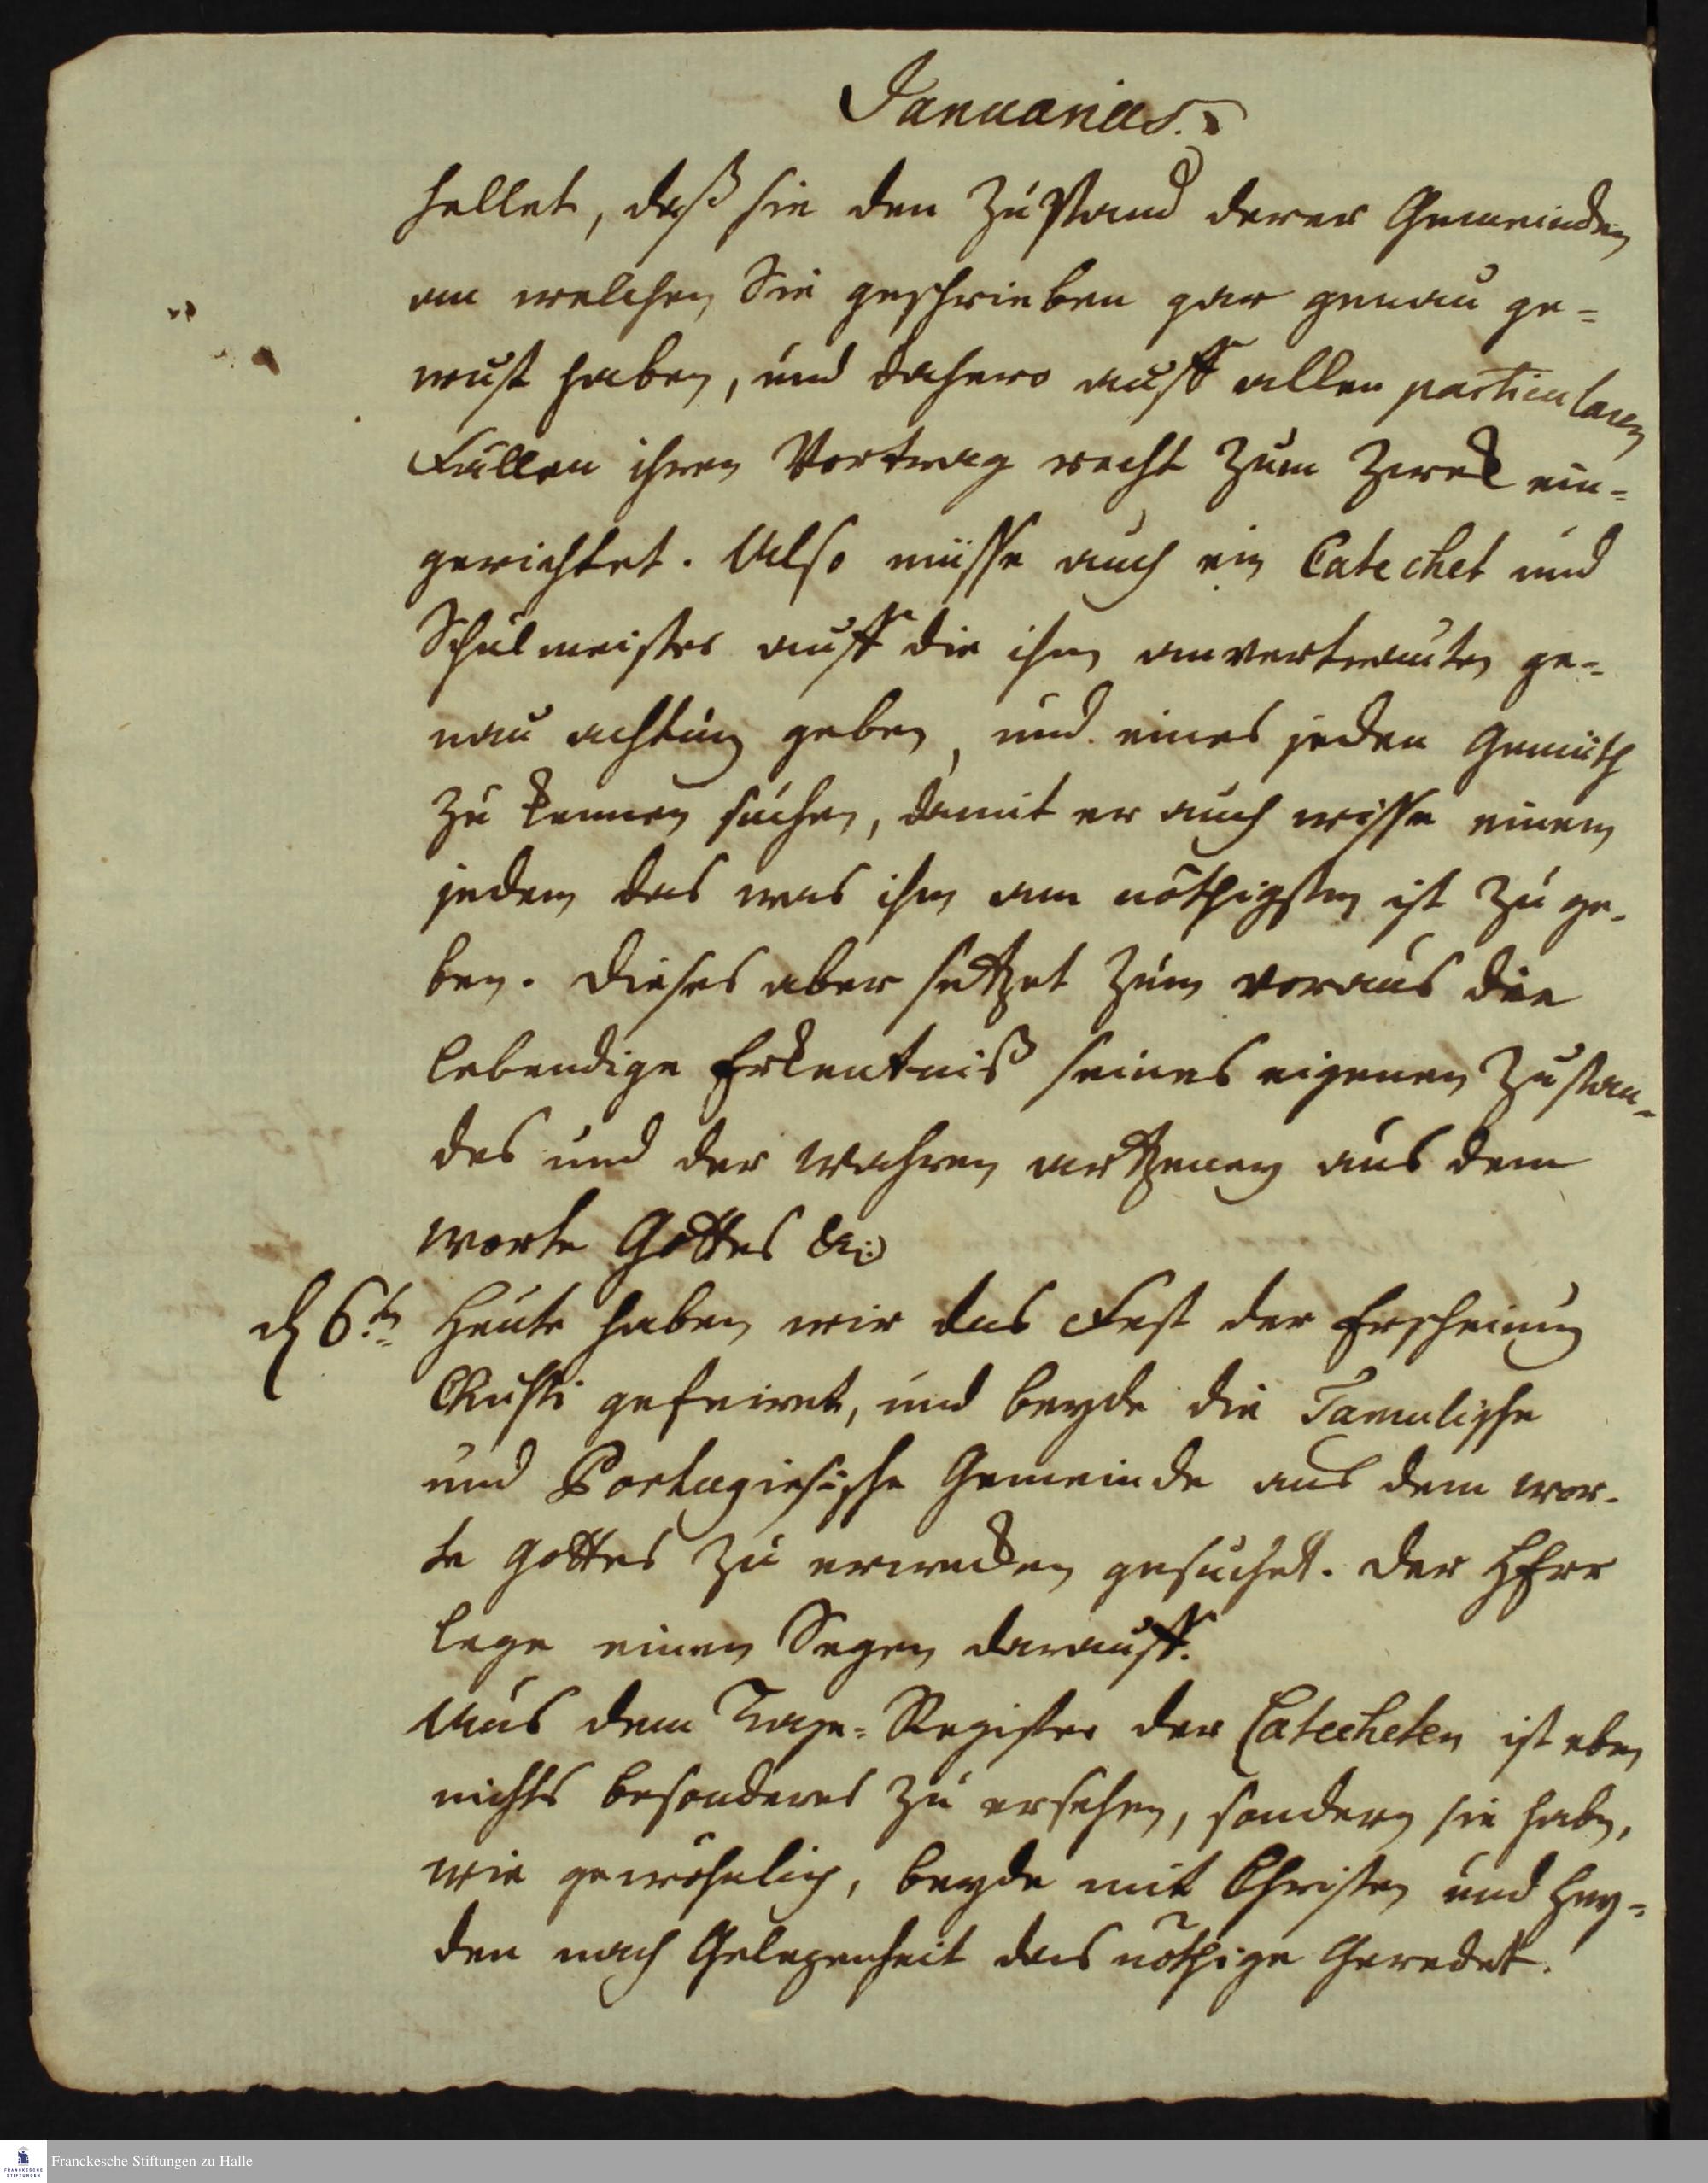 Januarius.
hellet, daß sie den Zustand derer Gemeinden
an welchen Sie geschrieben gar genau ge-
wust haben, und dahero auff allen particularen
Fällen ihren Vortrag recht zum Zweck ein-
gerichtet. Also müsse auch ein Catechet und
Schulmeister auff die ihm anvertrauten ge-
nau achtung geben, und eines jeden Gemüth
zu kennen suchen, damit er auch wisse einem
jeden das was ihm am nöthigsten ist zu ge-
ben. Dieses aber setzet zum voraus die
lebendige Erkentniß seines eigenen Zustan-
des und der wahren artzeney aus dem
worte Gottes &c:
d 6.ten Heute haben wir das Fest der Erscheinung
Christi gefeiret, und beyde die Tamulische
und Portugiesische Gemeinde aus dem wor-
te Gottes zu erwecken gesuchet. Der HErr
lege einen Segen darauff.
Aus dem Tage-Register der Catecheten ist eben
nichts besonderes zu ersehen, sondern sie haben,
wie gewöhnlich, beyde mit Christen und Hey-
den nach Gelegenheit das nöthige Geredet.
FRANCKESCHE
STIFTUNGEN
Franckesche Stiftungen zu Halle